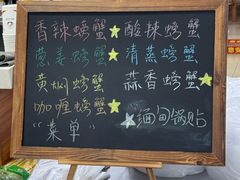 香辣螃蟹 酸辣螃蟹
葱姜螃蟹 清蒸螃蟹
黄焖螃蟹 蒜香螃蟹
咖喱螃蟹 缅甸锅贴
“菜单”